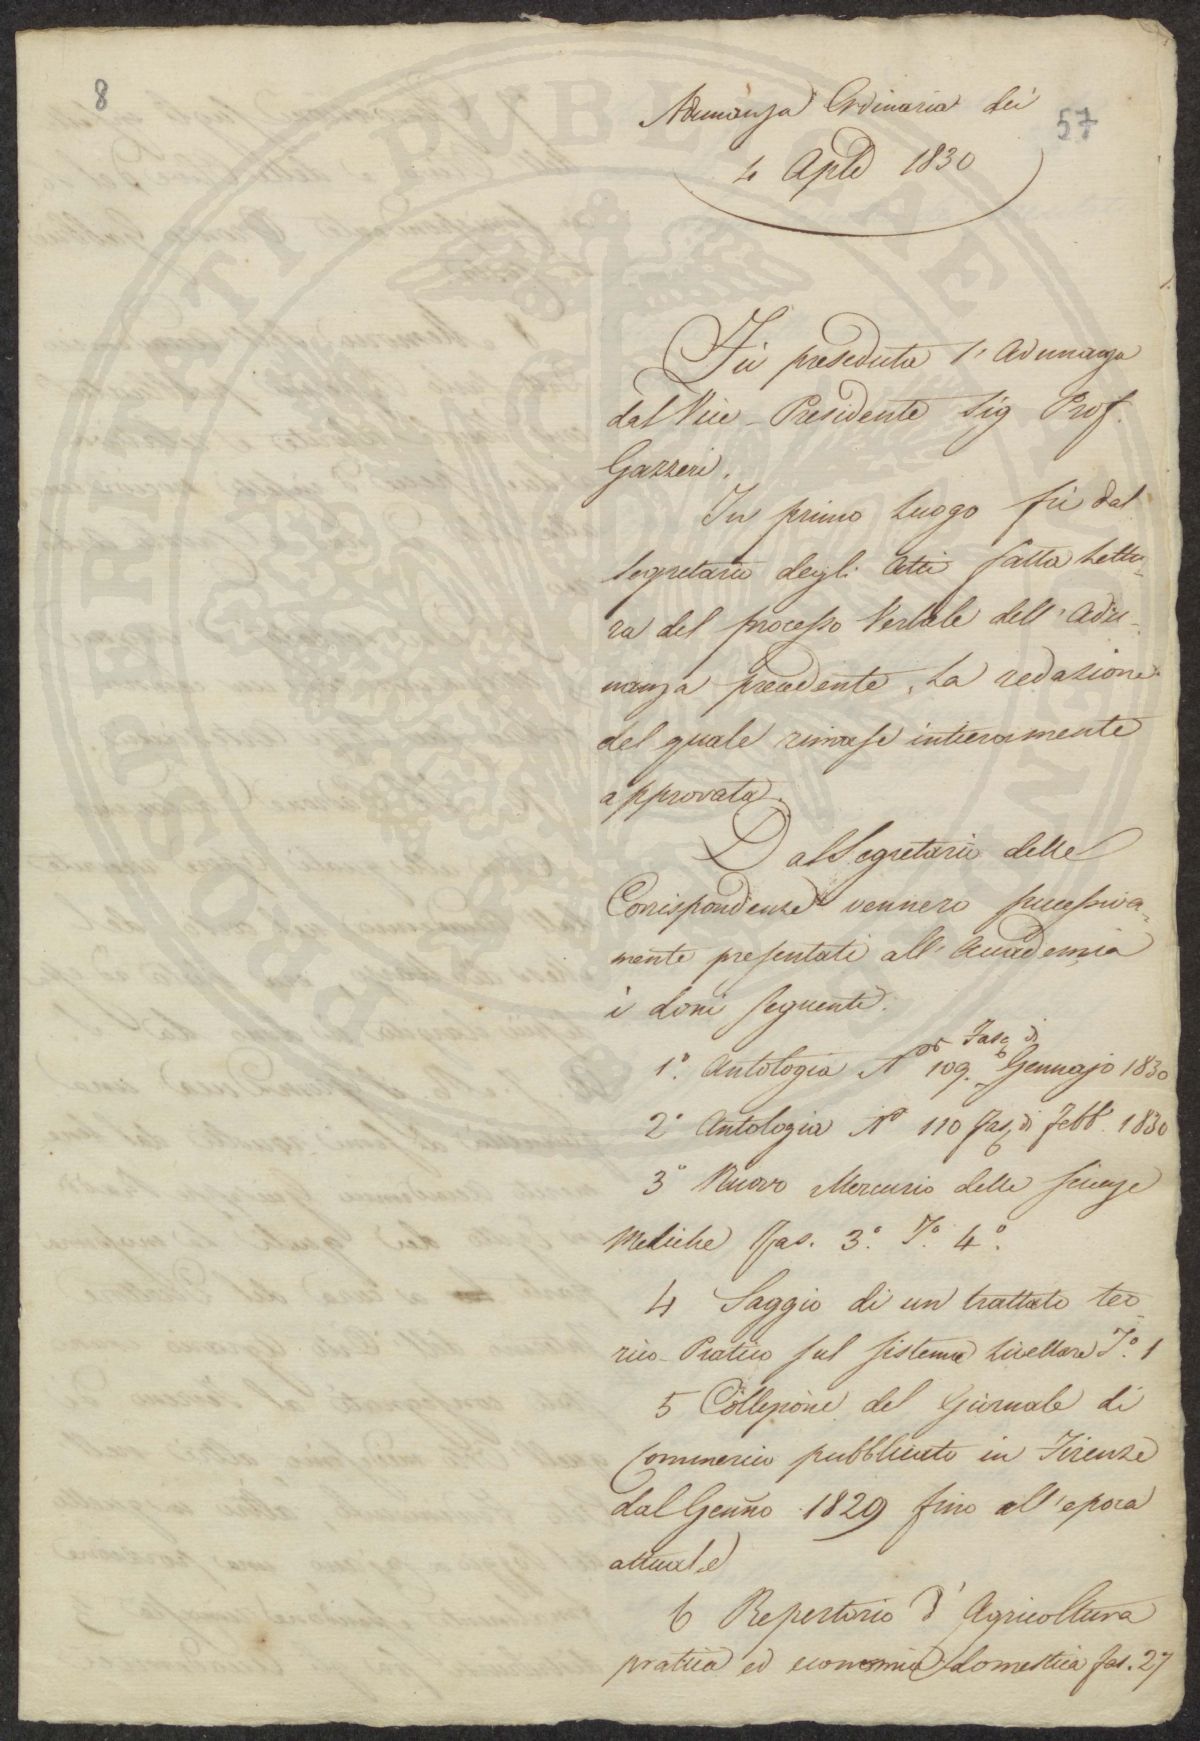 8
57
Adunanza Ordinaria dei
4 Aple 1830
Fù preseduta l'Adunanza
dal Vice-Presidente Sig Prof.
Gazzeri.
In primo luogo fù dal
Segretario degli Atti fatta Lettu-
ra del processo Verbale dell'Adu-
nanza precedente, La redazione
del quale rimase intieramente
approvata.
Dal Segretario delle
Corrispondenze vennero successiva-
mente presentati all'Accademia
i doni seguenti.
1.° Antologia N° 109. Fasc di Gennajo 1830
2° Antologia N° 110 fasc di Febb. 1830
3° Nuovo Mercurio delle scienze
Mediche Fas. 3.° T.° 4.°
4 Saggio di un trattato teo-
rico-Pratico sul sistema Livellare T.° 1
5 Collezione del Giornale di
Commercio pubblicato in Firenze
dal Genno 1829 fino all'epoca
attuale
6 Repertorio d'Agricoltura
pratica ed economia domestica fas. 27